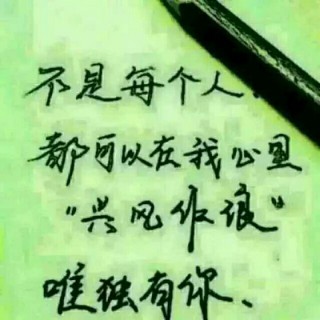 不是每个人、
都可以在我心里
“兴风作浪”
唯独有你、